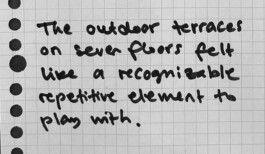 The outdoor terraces
on seven floors felt
like a recognizable
repetitive element to
play with.